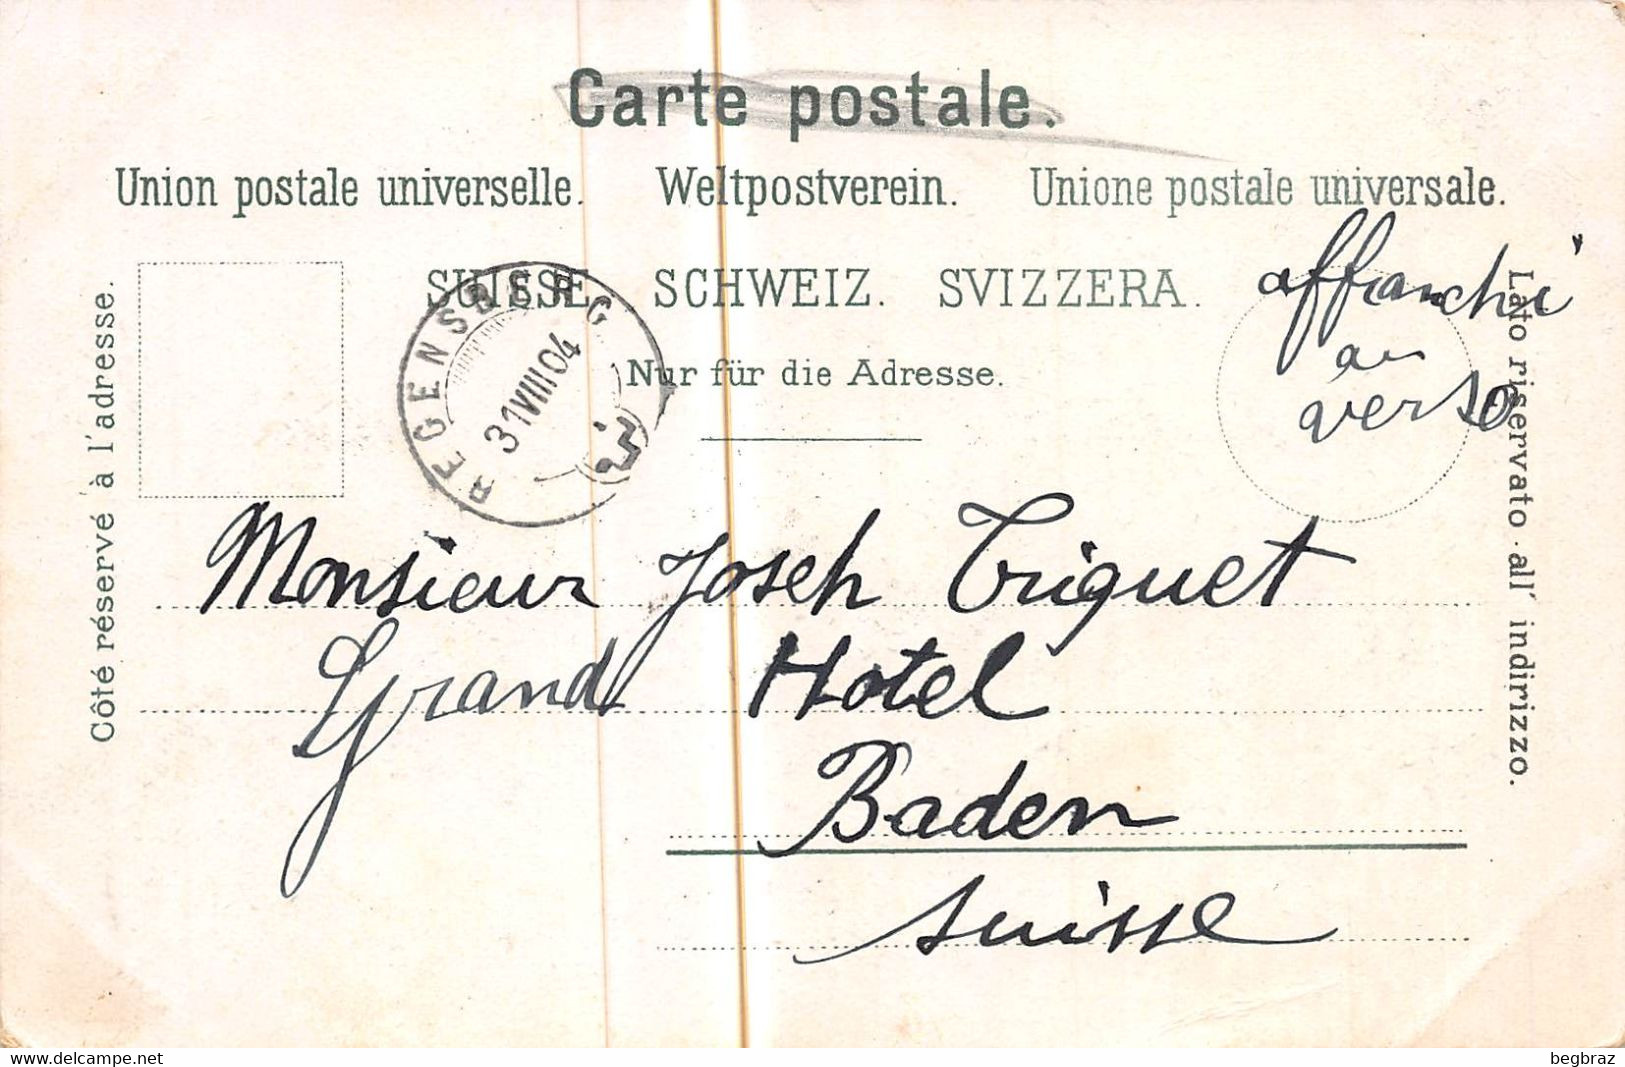 Carte postale.
Union postale universelle. Weltpostverein. Unione postale universale.
SUISSE. SCHWEIZ. SVIZZERA.
Nur für die Adresse.
Côté réservé à l'adresse.
Lato riservato all' indirizzo.
REGENSBERG
31 VIII 04
affranchi
au
verso
Monsieur Joseh Triquet
Grand Hotel
Baden
Suisse
www.delcampe.net
begbraz